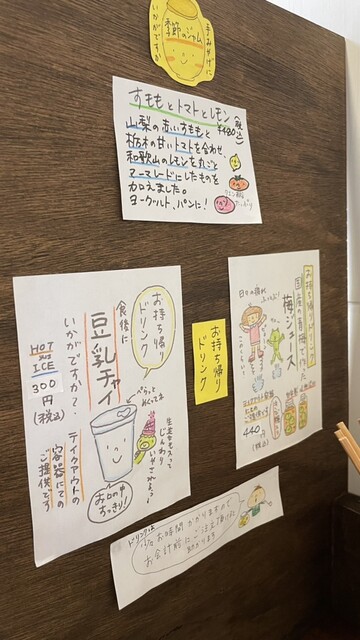 手みやげに
いかがですか
季節のジャム
すももとトマトとレモン
¥480(税込)
山梨の赤いすももと
栃木の甘いトマトを合わせ
和歌山のレモンを丸ごと
マーマレードにしたものを
加えました。
ヨーグルト、パンに!
お持ち帰り
ドリンク
食後に
豆乳チャイ
いかがですか?
HOT
ICE
300
円
(税込)
テイクアウトの
容器にての
ご提供です
お持ち帰り
ドリンク
お持ち帰りドリンク
国産の青梅で作った
梅ジュース
440円
(税込)
ドリンクは
お時間かかりますので
お会計前にご注文頂けると
助かります